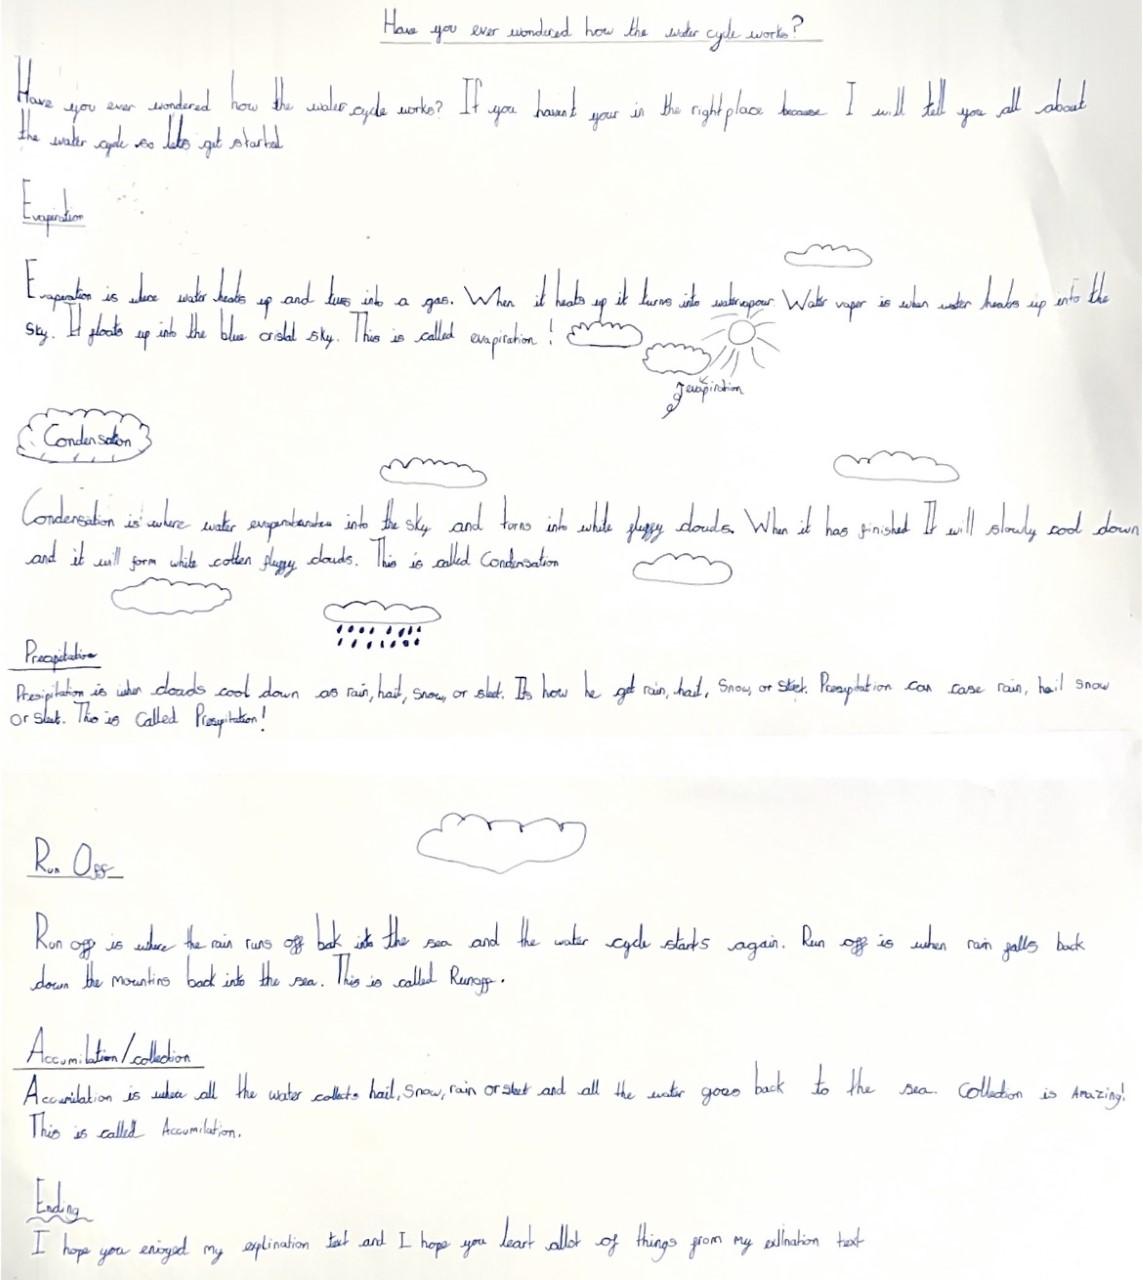 Have you ever wondered how the water cycle works?
Have you ever wondered how the water cycle works? If you havent your in the right place because I will tell you all about
the water cycle so lets get started
Evapiration
Evaperation is where water heats up and turns into a gas. When it heats up it turns into watervapour Water vaper is when water heats up into the
sky. It floats up into the blue cristal sky. This is called evapiration!
evapiration
Condensation
Condensation is where water into the sky and turns into white fluffy clouds. When it has finished It will slowly cool down
and it will form white cotten fluffy clouds. This is called Condensation
Precapitation
Presipitation is when clouds cool down as rain, hail, snow, or sleet. Its how he get rain, hail, Snow, or Sleet. Presyptation can case rain, hail snow
or sleet. This is Called Presypitation!
Run Off
Run off is where the rain runs off bak into the sea and the water cycle starts again. Run off is when rain falls back
down the mountins back into the sea. This is called Runoff.
Accumilation/collection
Accumilation is where all the water collects hail, Snow, rain or sleet and all the water goes back to the sea. Collection is Amazing!
This is called Accumilation.
Ending
I hope you enioyed my explination text and I hope you leart allot of things from my exllnation text